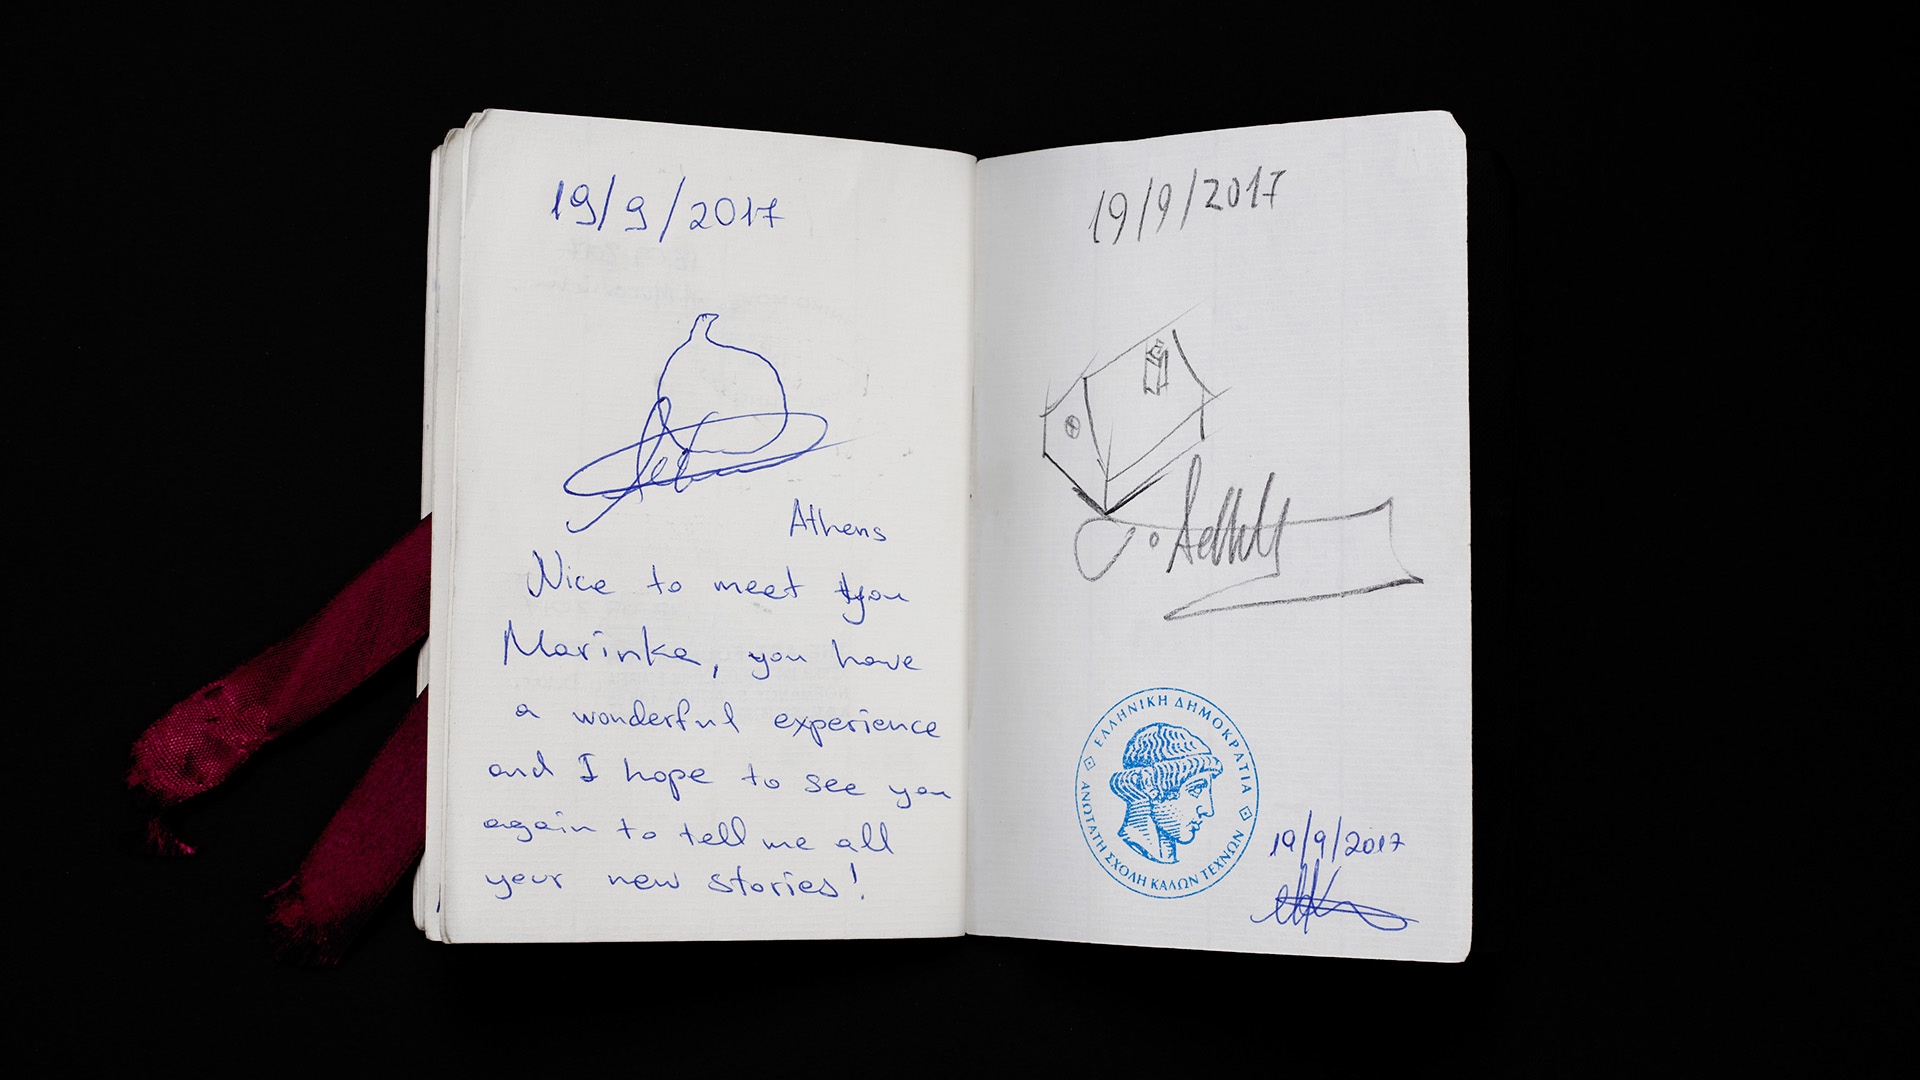 19/9/2017
Athens
Nice to meet you
Marinka, you have
a wonderful experience
and I hope to see you
again to tell me all
your new stories!
19/9/2017
ΕΛΛΗΝΙΚΗ ΔΗΜΟΚΡΑΤΙΑ
ΑΝΩΤΑΤΗ ΣΧΟΛΗ ΚΑΛΩΝ ΤΕΧΝΩΝ
19/9/2017